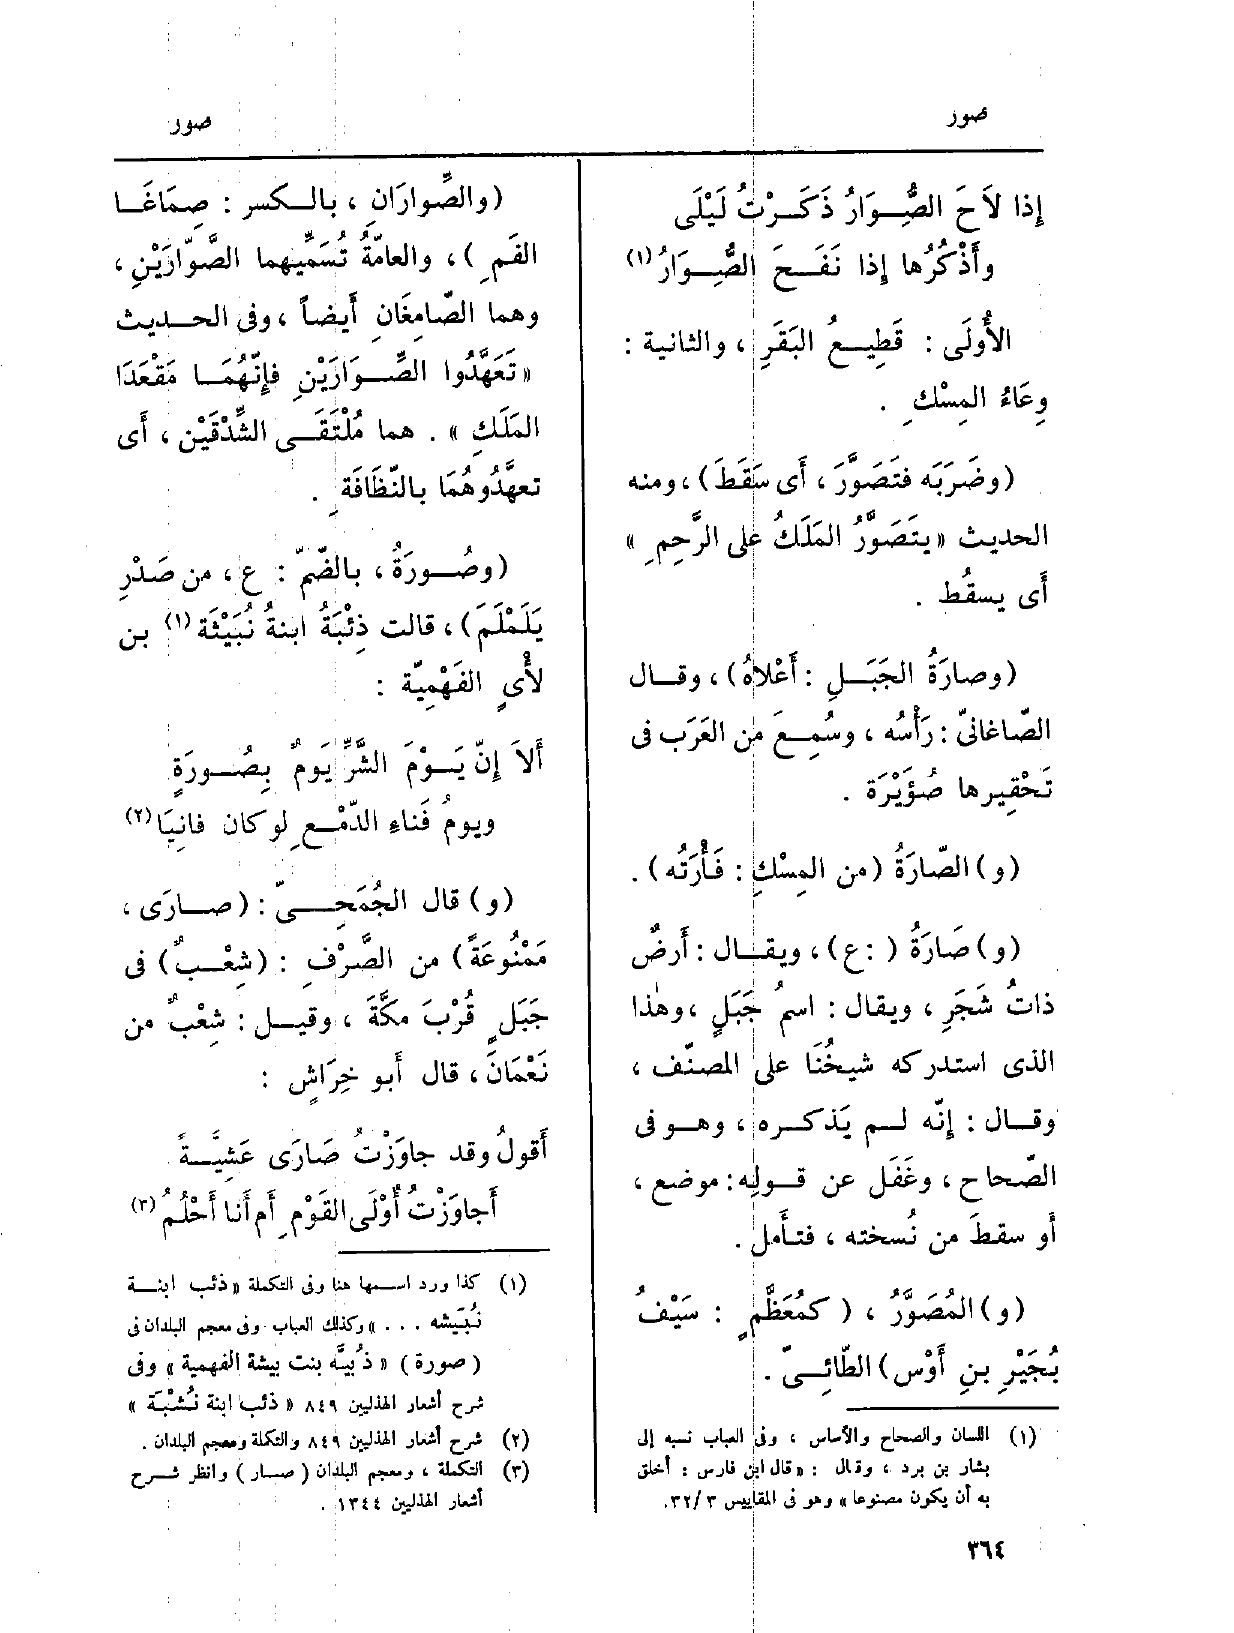 صور
صور
إذا لاَحَ الصُِّوَارُ ذَكَرْتُ لَيْلَى
وأَذْكُرُها إذا نَفَحَ الصُِّوَارُ (١)
الأُولَى : قَطِيعُ البَقَرِ ، والثانية :
وِعَاءُ المِسْكِ .
(وضَرَبَه فتَصَوَّرَ ، أَى سَقَطَ) ، ومنه
الحديث «يتَصَوَّرُ المَلَكُ على الرَّحِمِ »
أَى يسقُط .
(وصارَةُ الجَبَلِ : أَعْلاهُ) ، وقال
الصّاغانىّ : رَأْسُه ، وسُمِعَ من العَرَب فى
تَحْقِيرها صُؤَيْرَة .
(و) الصّارَةُ (من المِسْكِ : فَأْرَتُه) .
(و) صَارَةُ ( : ع) ، ويقال : أَرضٌ
ذاتُ شَجَرٍ ، ويقال : اسمُ جَبَلٍ ، وهٰذا
الذى استدركه شيخُنَا على المصنّف ،
وقال : إنّه لم يَذكره ، وهو فى
الصّحاح ، وغَفَل عن قوله : موضع ،
أَو سقطَ من نُسخته ، فتأَمل .
(و) المُصَوَّرُ ، ( كمُعَظَّمٍ : سَيْفُ
بُجَيْرِ بنِ أَوْس) الطّائِىّ .
(١) اللسان والصحاح والأساس ، وفى العباب نسبه إلى
بشار بن برد ، وقال : «قال ابن فارس : أخلق
به أن يكون مصنوعا » وهو فى المقاييس ٣ /٣٢.
(والصِّوارَانِ ، بالكسر : صِمَاغَا
الفَمِ ) ، والعامّةُ تُسَمِّيهما الصَّوّارَيْنِ ،
وهما الصّامِغَانِ أَيضاً ، وفى الحديث
«تَعَهَّدُوا الصِّوَارَيْنِ فإِنَّهُمَا مَقْعَدَا
المَلَكِ » . هما مُلْتَقَى الشِّدْقَيْن ، أَى
تعهَّدُوهُمَا بالنَّظَافَةِ .
(وصُورَةُ ، بالضّمّ : ع ، من صَدْرِ
يَلَمْلَمَ) ، قالت ذِئْبَةُ ابنةُ نُبَيْثَة (١) بن
لأْىٍ الفَهْمِيّة :
أَلاَ إنّ يَوْمَ الشَّرِّ يَومٌ بِصُورَةٍ
ويومُ فَناءِ الدَّمْعِ لو كان فانِيَا (٢)
(و) قال الجُمَحِىّ : (صارَى ،
مَمْنُوعَةً) من الصَّرْفِ : (شِعْبٌ) فى
جَبَلٍ قُرْبَ مكَّةَ ، وقيل : شِعْبٌ من
نَعْمَانَ ، قال أَبو خِرَاشٍ :
أَقولُ وقد جاوَزْتُ صَارَى عَشِيَّةً
أَجاوَزْتُ أُوْلَى القَوْمِ أَم أَنا أَحْلُمُ (٣)
(١) كذا ورد اسمها هنا وفى التكملة «ذئب ابنة
نُبَيْشه . . . » وكذلك العباب وفى معجم البلدان فى
(صورة) « ذُبيَّه بنت بيشة الفهمية » وفى
شرح أشعار الهذليين ٨٤٩ « ذئب ابنة نُشْبَة »
(٢) شرح أشعار الهذليين ٨٤٩ والتكلة ومعجم البلدان .
(٣) التكملة ، ومعجم البلدان (صار) وانظر شرح
أشعار الهذليين ١٣٤٤ .
٣٦٤